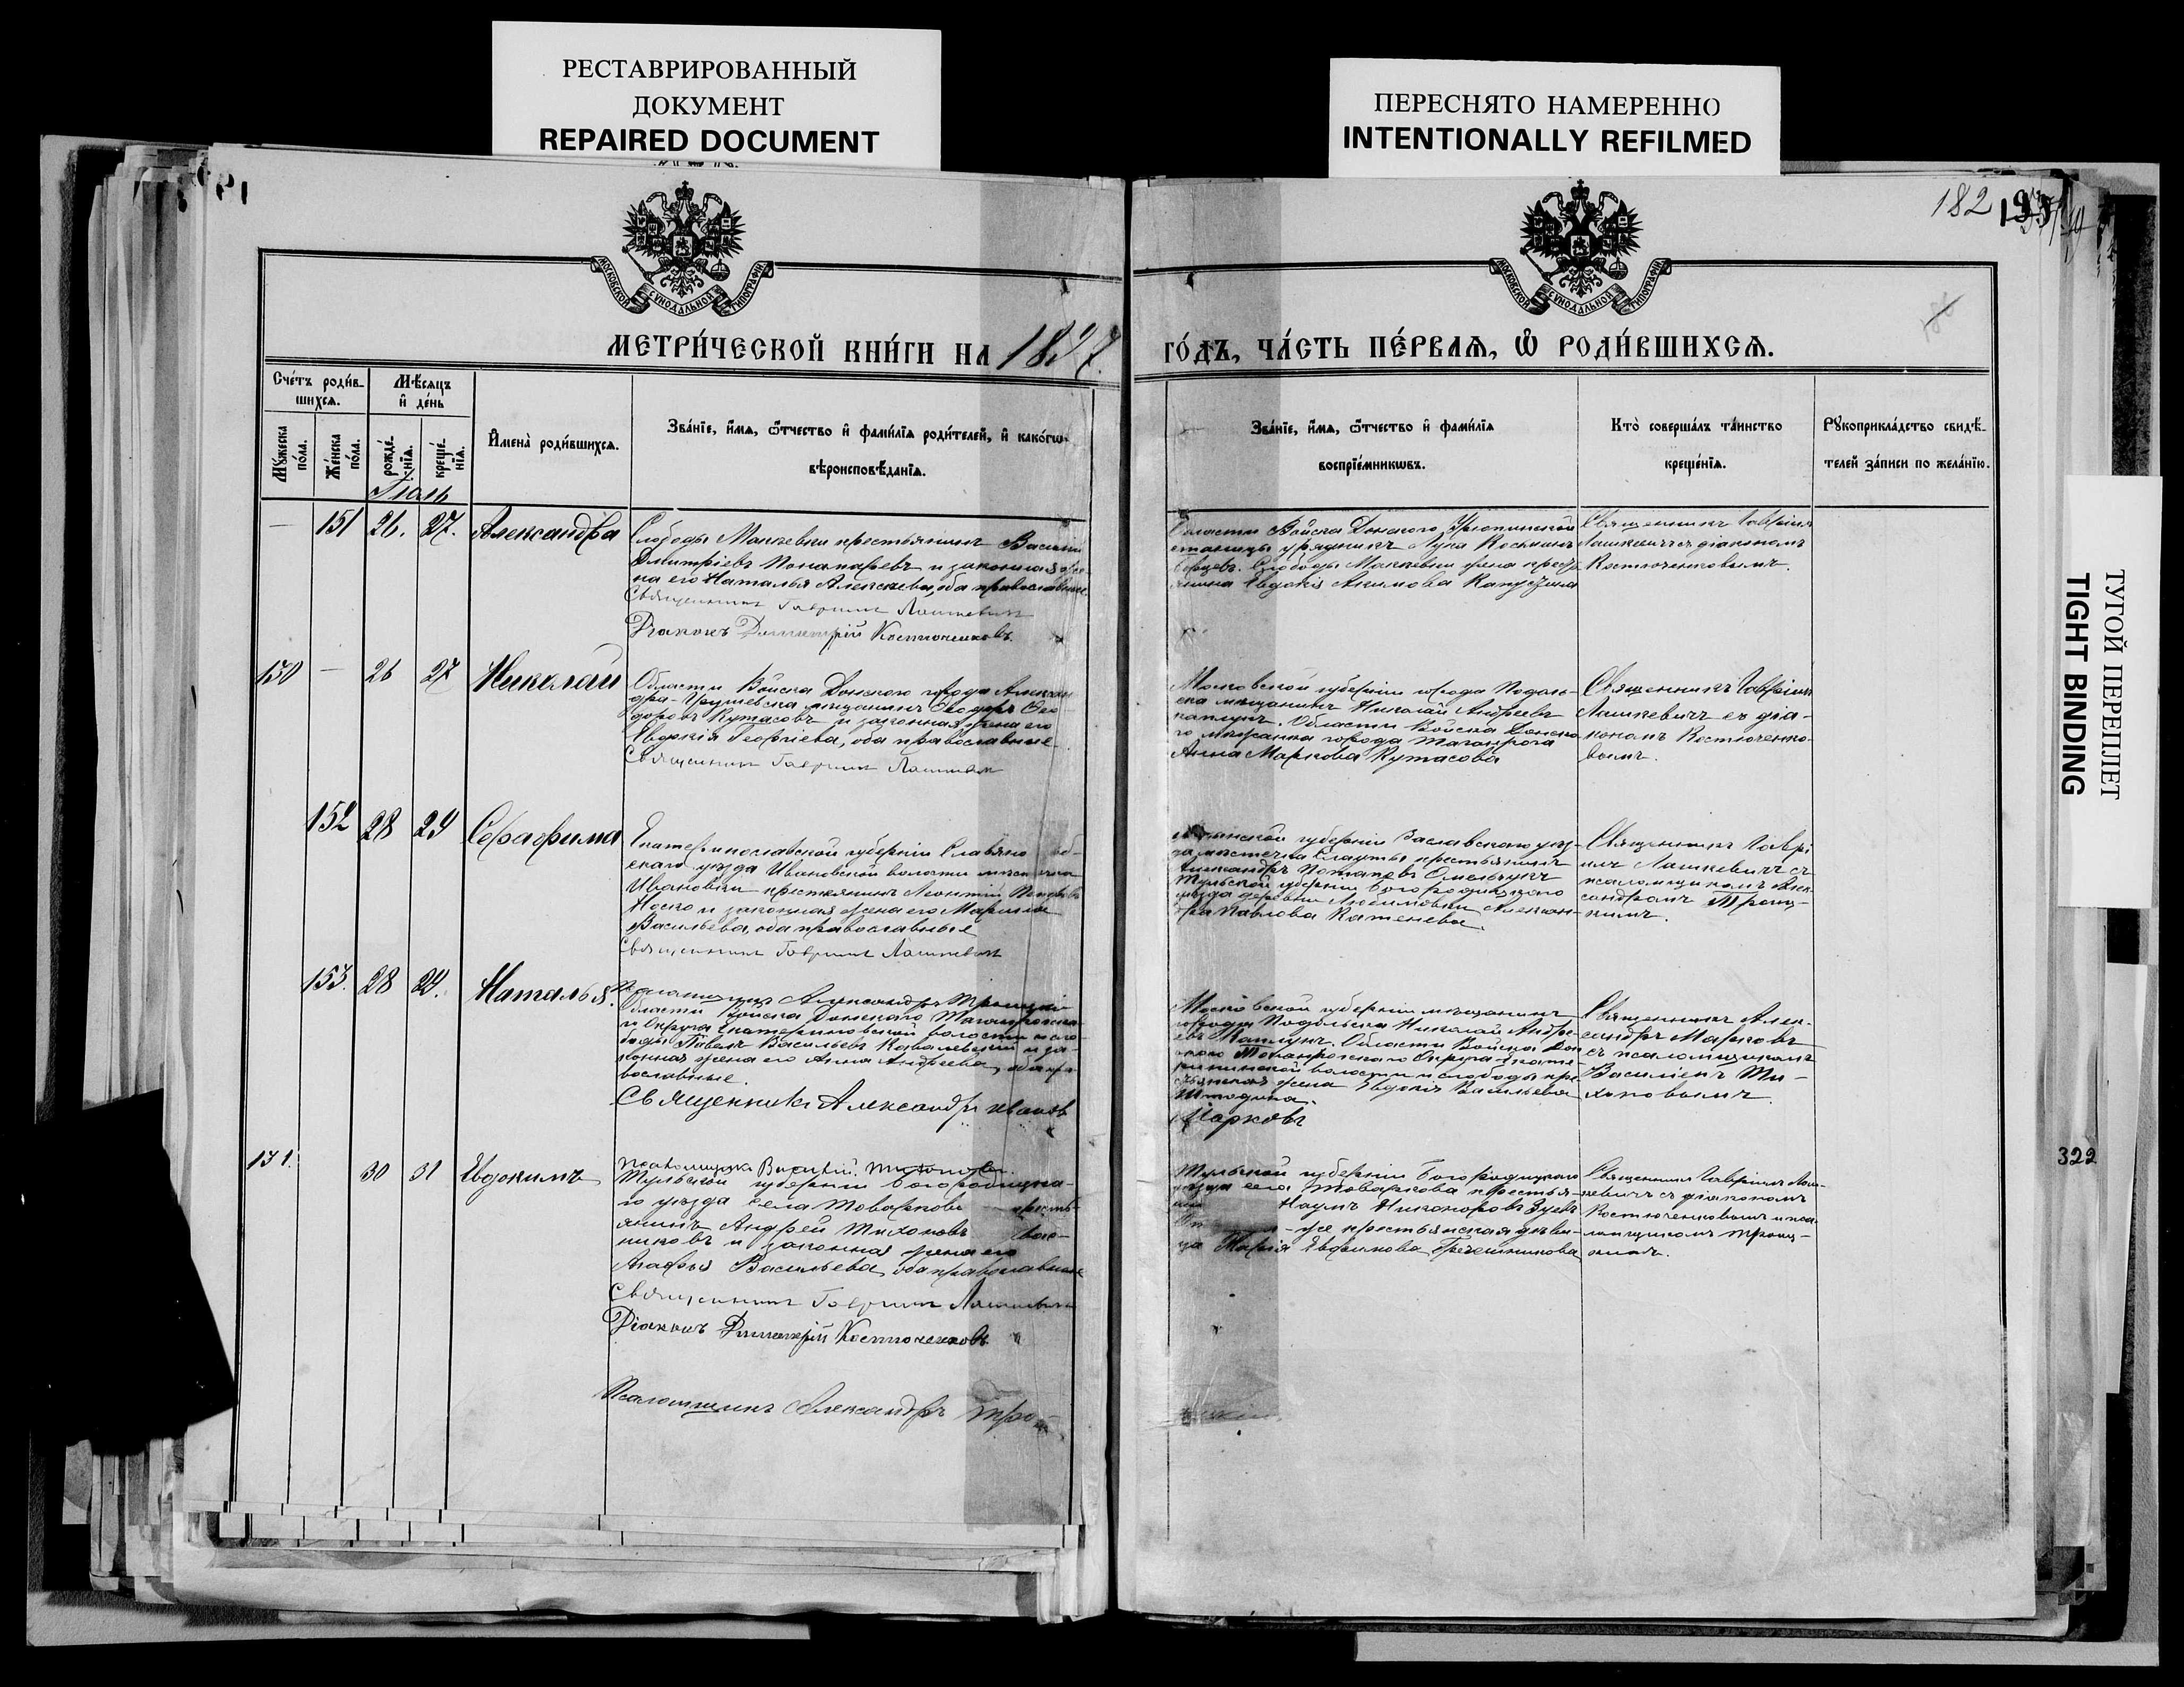 РЕСТАВРИРОВАННЫЙ
ДОКУМЕНТ
REPAIRED DOCUMENT
ПЕРЕСНЯТО НАМЕРЕННО
INTENTIONALLY REFILMED
182
МОСКОВСКОЙ СУНОДАЛЬНОЙ ТИПОГРАФІИ
МОСКОВСКОЙ СУНОДАЛЬНОЙ ТИПОГРАФІИ
МЕТРИ́ЧЕСКОЙ КНИ́ГИ НА 18 7.
ГО́ДЪ, ЧА́СТЬ ПЕ́РВАѦ, Ѽ РОДИ́ВШИХСѦ.
Сче́тъ роди́в-
шихсѧ.
Мѣ́сѧцъ
и҆ де́нь
Мꙋ́жеска
по́ла.
Же́нска
по́ла.
рожде́-
нїѧ.
креще́-
нїѧ.
И҆мена̀ роди́вшихсѧ.
Зва́нїе, и҆́мѧ, ѻ҆́тчество и҆ фами́лїѧ роди́телей, и҆ како́гѡ
вѣроисповѣ́данїѧ.
Зва́нїе, и҆́мѧ, ѻ҆́тчество и҆ фами́лїѧ
воспрїе́мникѡвъ.
Кто̀ соверша́лъ та́инство
креще́нїѧ.
Рꙋкоприкла́дство свидѣ́-
телей за́писи по жела́нїю.
Іюль
151 26. 27. Александра
Слободы Макеевки крестьянинъ Василій
Димитріевъ Понамаревъ и законная же-
на его Наталья Алексѣева, оба православные.
Священникъ Гавріилъ Лашкевичъ
Діаконъ Димитрій Костюченковъ.
Области Войска Донского Урюпинской
станицы урядникъ Лука Косминъ
Слободы Макеевки жена кресть-
янина Евдокія Акимова
Священникъ Гавріилъ
Лашкевичъ съ діакономъ
Костюченковымъ.
130 — 26 27 Николай
Области Войска Донского города Алексан-
дра-Грушевска мѣщанинъ Ѳеодоръ Ѳео-
доровъ Кутасовъ и законная жена его
Евдокія Георгіева, оба православные
Священникъ Гавріилъ Лашкевичъ
Московской губерніи города Подоль-
ска мѣщанинъ Николай Андреевъ
Области Войска Донско-
го мѣщанка города Таганрога
Анна Маркова Кутасова
Священникъ Гавріилъ
Лашкевичъ съ діа-
кономъ Костюченко-
вымъ.
152 28 29 Серафима
Екатеринославской губерніи Славяно
скаго уѣзда Ивановской волости
Ивановки крестьянинъ Леонтій
Носко и законная жена его Марина
Васильева, оба православные
Священникъ Гавріилъ Лашкевичъ
губерніи Заславскаго уѣз-
да мѣстечка Славуты крестьянинъ
Александръ Потаповъ Омельчукъ
Тульской губерніи Богородицкаго
уѣзда деревни Александ-
ра Павлова Каменева.
Священникъ Гаврі-
илъ Лашкевичъ съ
псаломщикомъ Алек-
сандромъ Троиц-
кимъ.
153. 28 29. Наталья.
Псаломщикъ Александръ Троицкій
Области Войска Донского Таганрогска-
го Округа Екатериновской волости и сло-
боды Павелъ Васильевъ Ковалевскій и за-
конная жена его Анна Андреева, оба пра-
вославные.
Священникъ Александръ Иванов
Московской губерніи мѣщанинъ
города Подольска Николай Андре-
евъ Области Войска Дон-
ского Таганрогскаго Округа Екате-
рининской волости и слободы кре-
стьянская жена Евдокія Васильева
Марковъ
Священникъ Алек-
сандръ Марковъ
съ псаломщикомъ
Василіемъ Ти-
хоновымъ.
131. 30 31 Евдокимъ
Псаломщикъ Василій Тихоновъ.
Тульской губерніи Богородицка-
го уѣзда села Товаркова кресть-
янинъ Андрей Тихоновъ
никовъ и законная жена его
Агафья Васильева, оба православные
Священникъ Гавріилъ Лашкевичъ
Діаконъ Димитрій Костюченковъ
Псаломщикъ Александръ Трои
Тульской губерніи Богородицкаго
уѣзда села Товаркова крестья-
Наумъ Никоноровъ Зуевъ
же крестьянская дѣви-
ца Марія Евдокимова Гречешникова
Священникъ Гавріилъ Лаш-
кевичъ съ діакономъ
Костюченковымъ и пса-
ломщикомъ Троиц-
кимъ.
ТУГОЙ ПЕРЕПЛЕТ
TIGHT BINDING
322